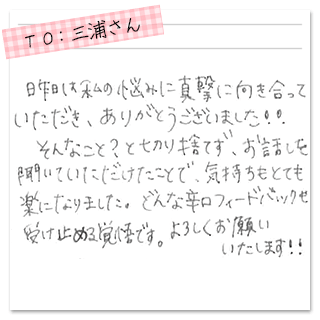 TO:三浦さん
昨日は私の悩みに真摯に向き合って
いただき、ありがとうございました!!
そんなこと?と切り捨てず、お話しを
聞いていただけたことで、気持ちもとても
楽になりました。どんな辛口フィードバックも
受け止める覚悟です。よろしくお願い
いたします!!